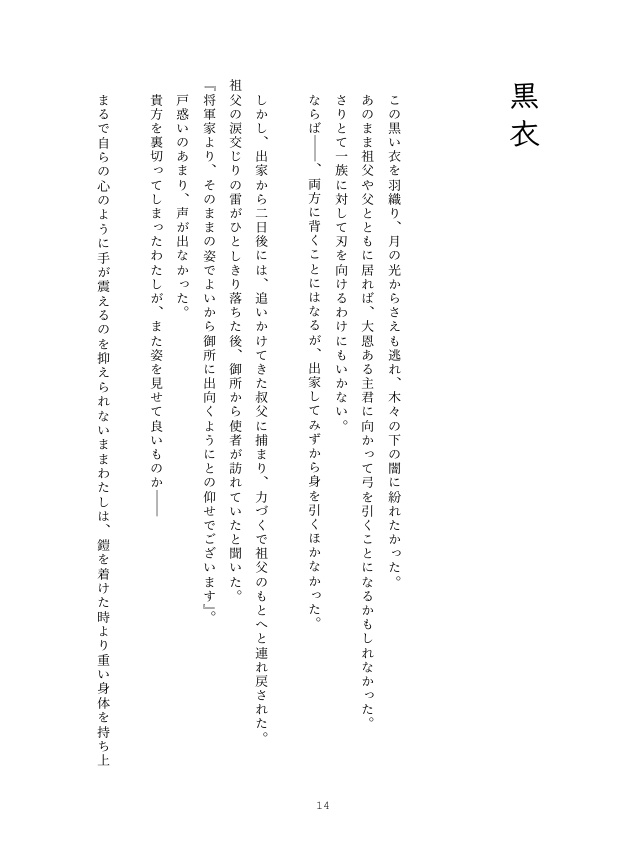 黒衣
この黒い衣を羽織り、月の光からさえも逃れ、木々の下の闇に紛れたかった。
あのまま祖父や父とともに居れば、大恩ある主君に向かって弓を引くことになるかもしれなかった。
さりとて一族に対して刃を向けるわけにもいかない。
ならば――、両方に背くことにはなるが、出家してみずから身を引くほかなかった。
しかし、出家から二日後には、追いかけてきた叔父に捕まり、力づくで祖父のもとへと連れ戻された。
祖父の涙交じりの雷がひとしきり落ちた後、御所から使者が訪れていたと聞いた。
『将軍家より、そのままの姿でよいから御所に出向くようにとの仰せでございます』。
戸惑いのあまり、声が出なかった。
貴方を裏切ってしまったわたしが、また姿を見せて良いものか――
まるで自らの心のように手が震えるのを抑えられないままわたしは、鎧を着けた時より重い身体を持ち上
14